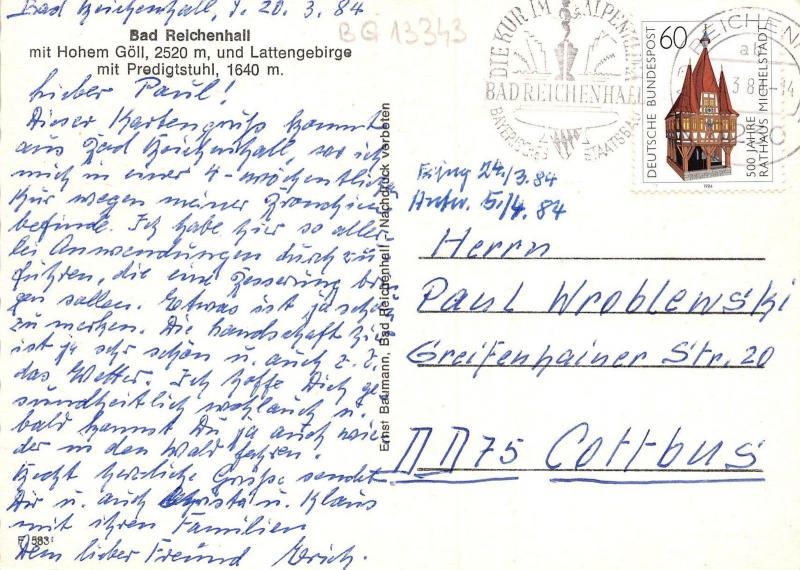 Bad Reichenhall, d. 20.3.84
Bad Reichenhall
mit Hohem Göll, 2520 m, und Lattengebirge
mit Predigtstuhl, 1640 m.
Lieber Paul!
Dieser Kartengruß kommt
aus Bad Reichenhall, wo ich
mich in einer 4-wöchentlichen
Kur wegen meiner Bronchien
befinde. Ich habe hier so aller-
lei Anwendungen durchzu-
führen, die eine Besserung brin-
gen sollen. Etwas ist ja schon
zu merken. Die Landschaft hier
ist ja sehr schön u. auch z. Z.
das Wetter. Ich hoffe Dich ge-
sundheitlich wohlauf u.
bald kannst Du ja auch wie-
der in den Wald fahren.
Recht herzliche Grüße sendet
Dir u. auch Christa u. Klaus
mit ihren Familien
Dein lieber Freund Erich.
F/583
Ernst Baumann, Bad Reichenhall / Nachdruck verboten
BQ 13343
DIE KUR IM ALPENKLIMA
BAD REICHENHALL
BAYERISCHES STAATSBAD
REICHENH
3 8 -14
DEUTSCHE BUNDESPOST
60
500 JAHRE
RATHAUS MICHELSTADT
1984
Eing 24./3.84
Antw. 5./4.84
Herrn
Paul Wroblewski
Greifenhainer Str. 20
DD 75 Cottbus